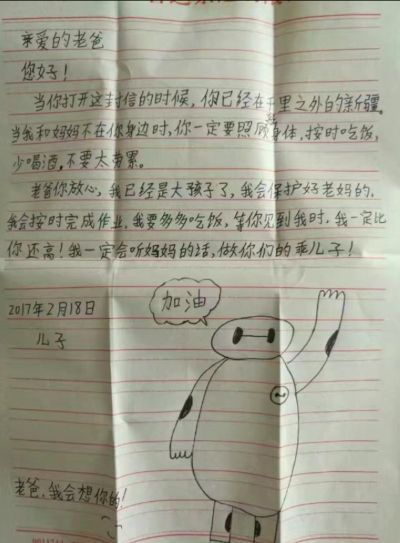 亲爱的老爸
您好！
当你打开这封信的时候，你已经在千里之外的新疆。
当我和妈妈不在你身边时，你一定要照顾身体，按时吃饭，
少喝酒，不要太劳累。
老爸你放心，我已经是大孩子了，我会保护好老妈的，
我会按时完成作业，我要多多吃饭，等你见到我时，我一定比
你还高！我一定会听妈妈的话，做你们的乖儿子！
加油
2017年2月18日
儿子
老爸，我会想你的！